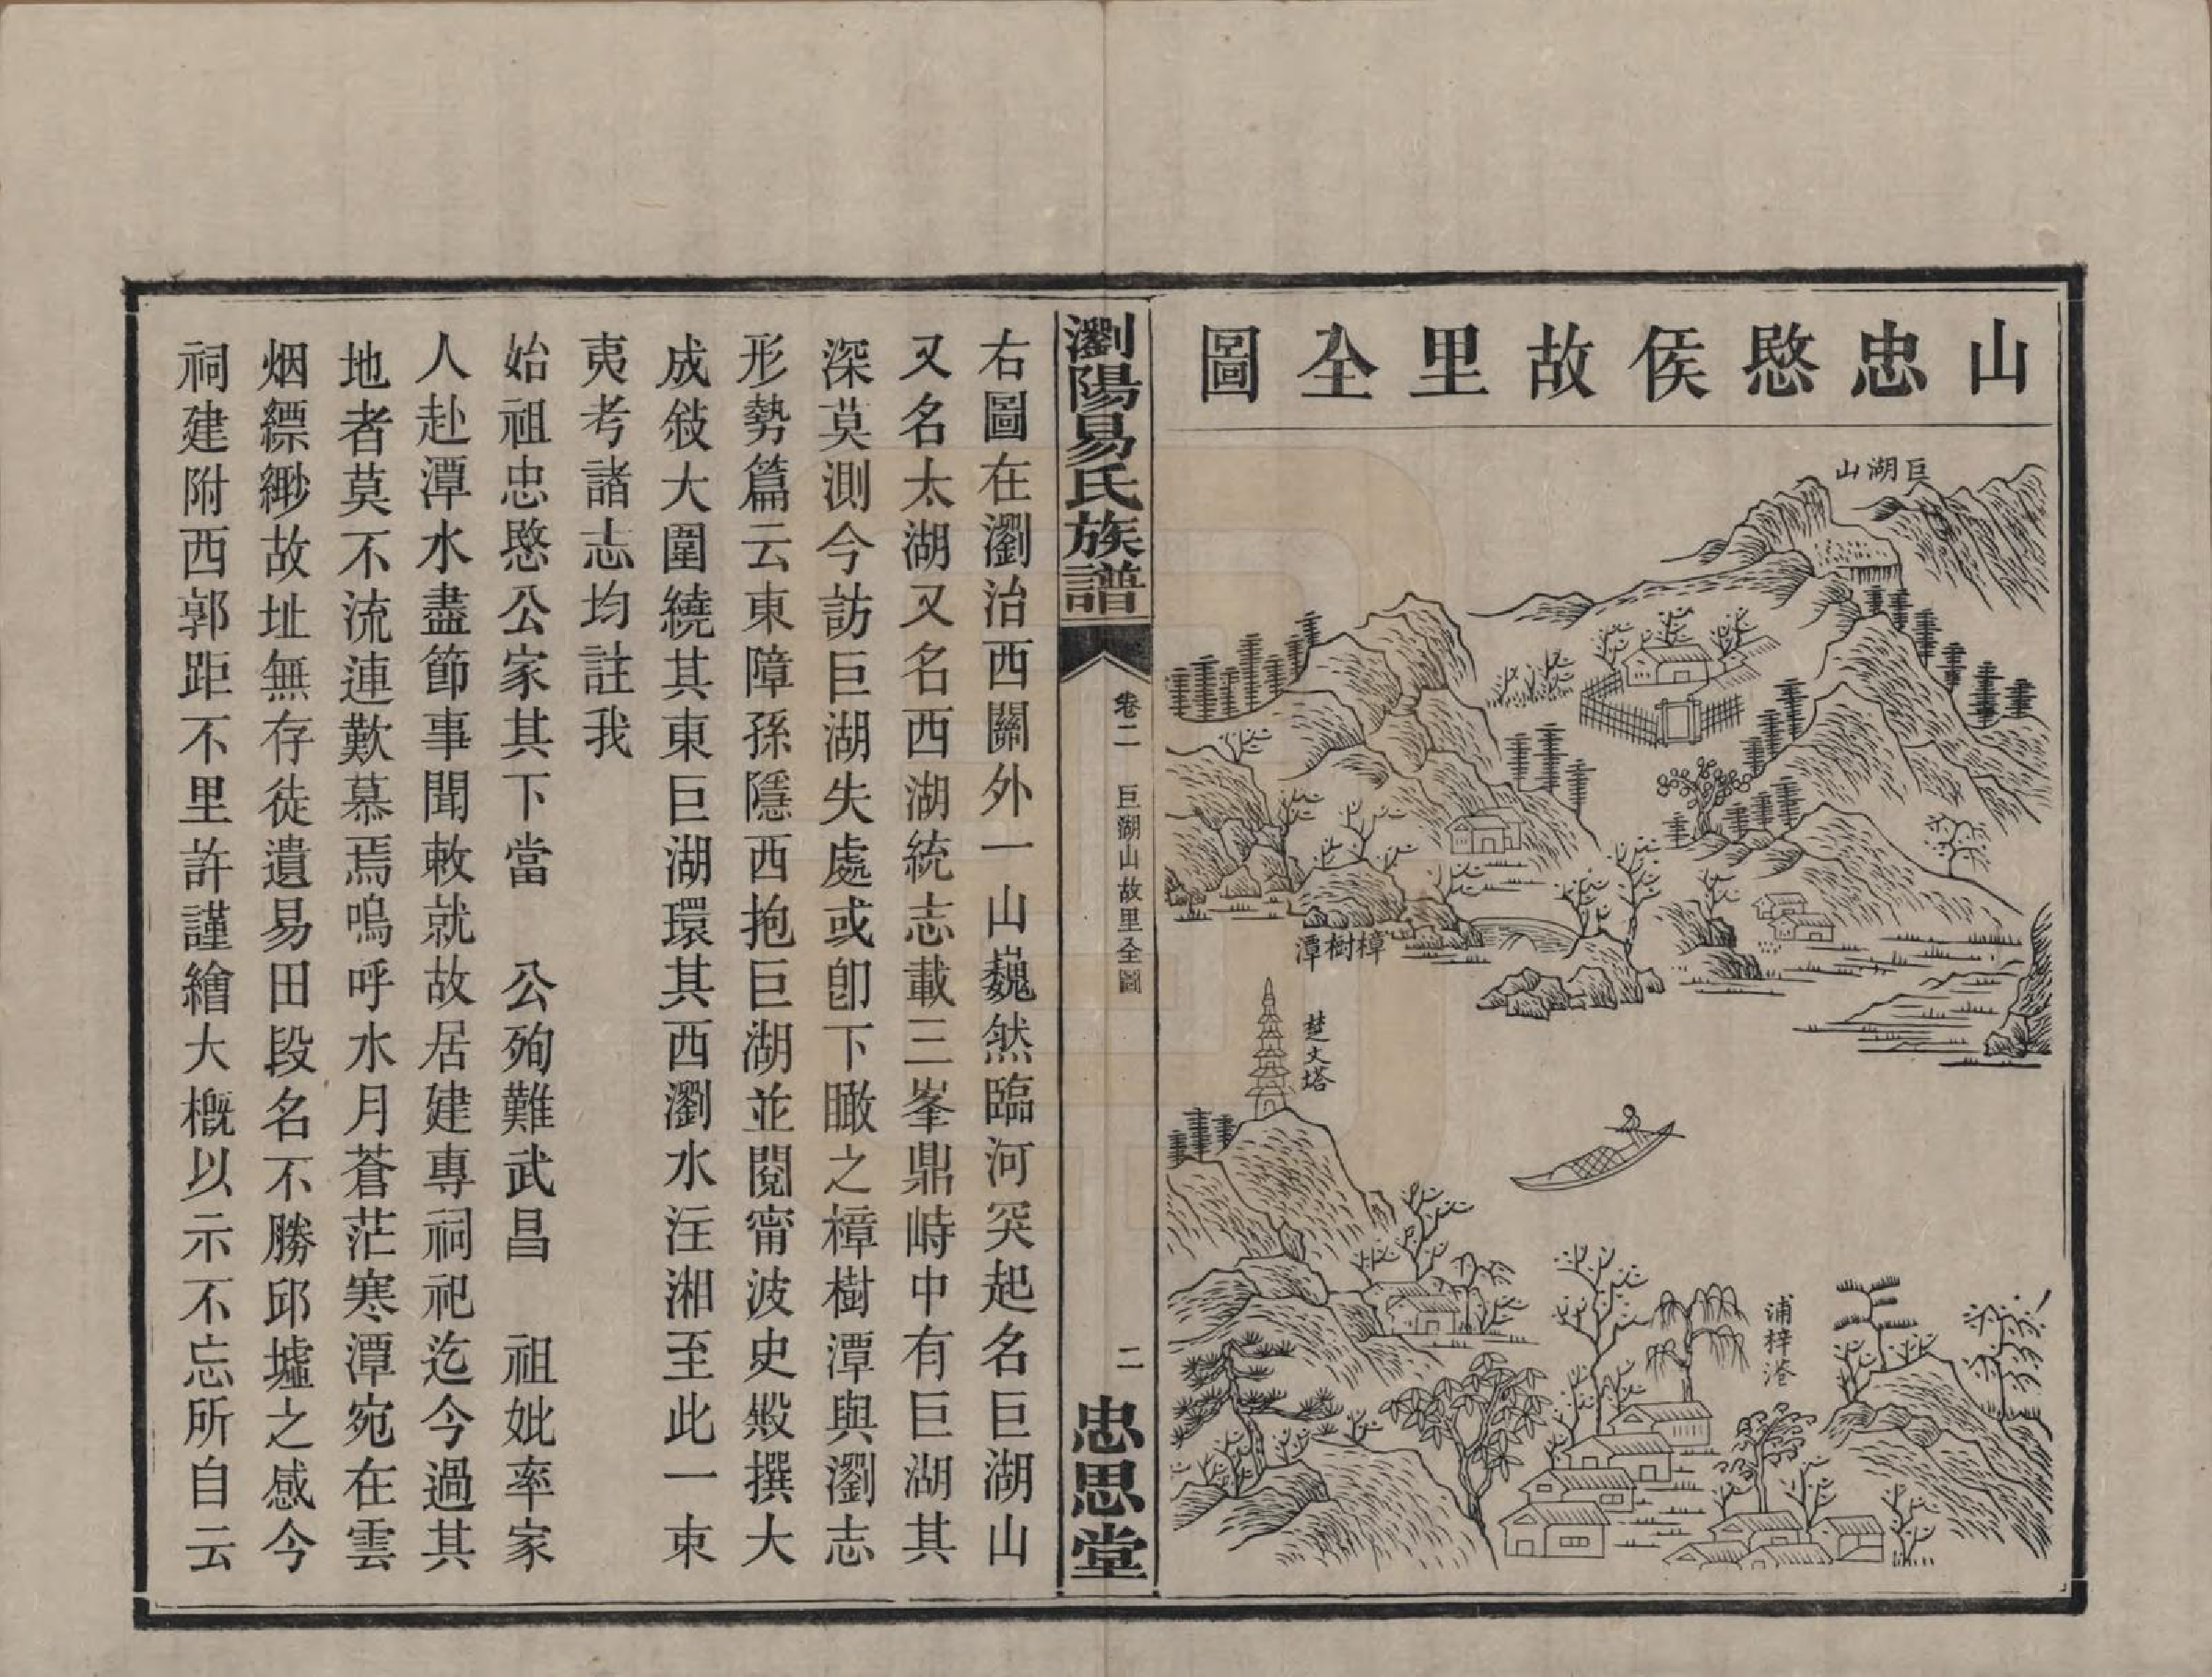 山忠愍侯故里全圖
巨湖山
樟樹潭
楚文塔
浦梓港
瀏陽易氏族譜
卷二
巨湖山故里全圖
二
忠思堂
右圖在瀏治西關外一山巍然臨河突起名巨湖山
又名太湖又名西湖統志載三峯鼎峙中有巨湖其
深莫測今訪巨湖失處或卽下瞰之樟樹潭與瀏志
形勢篇云東障孫隱西抱巨湖並閱甯波史㲄撰大
成敍大圍繞其東巨湖環其西瀏水注湘至此一束
夷考諸志均註我
始祖忠愍公家其下當　公殉難武昌　祖妣率家
人赴潭水盡節事聞敕就故居建專祠祀迄今過其
地者莫不流連歎慕焉嗚呼水月蒼茫寒潭宛在雲
烟縹緲故址無存徒遺易田段名不勝邱墟之感今
祠建附西郭距不里許謹繪大概以示不忘所自云